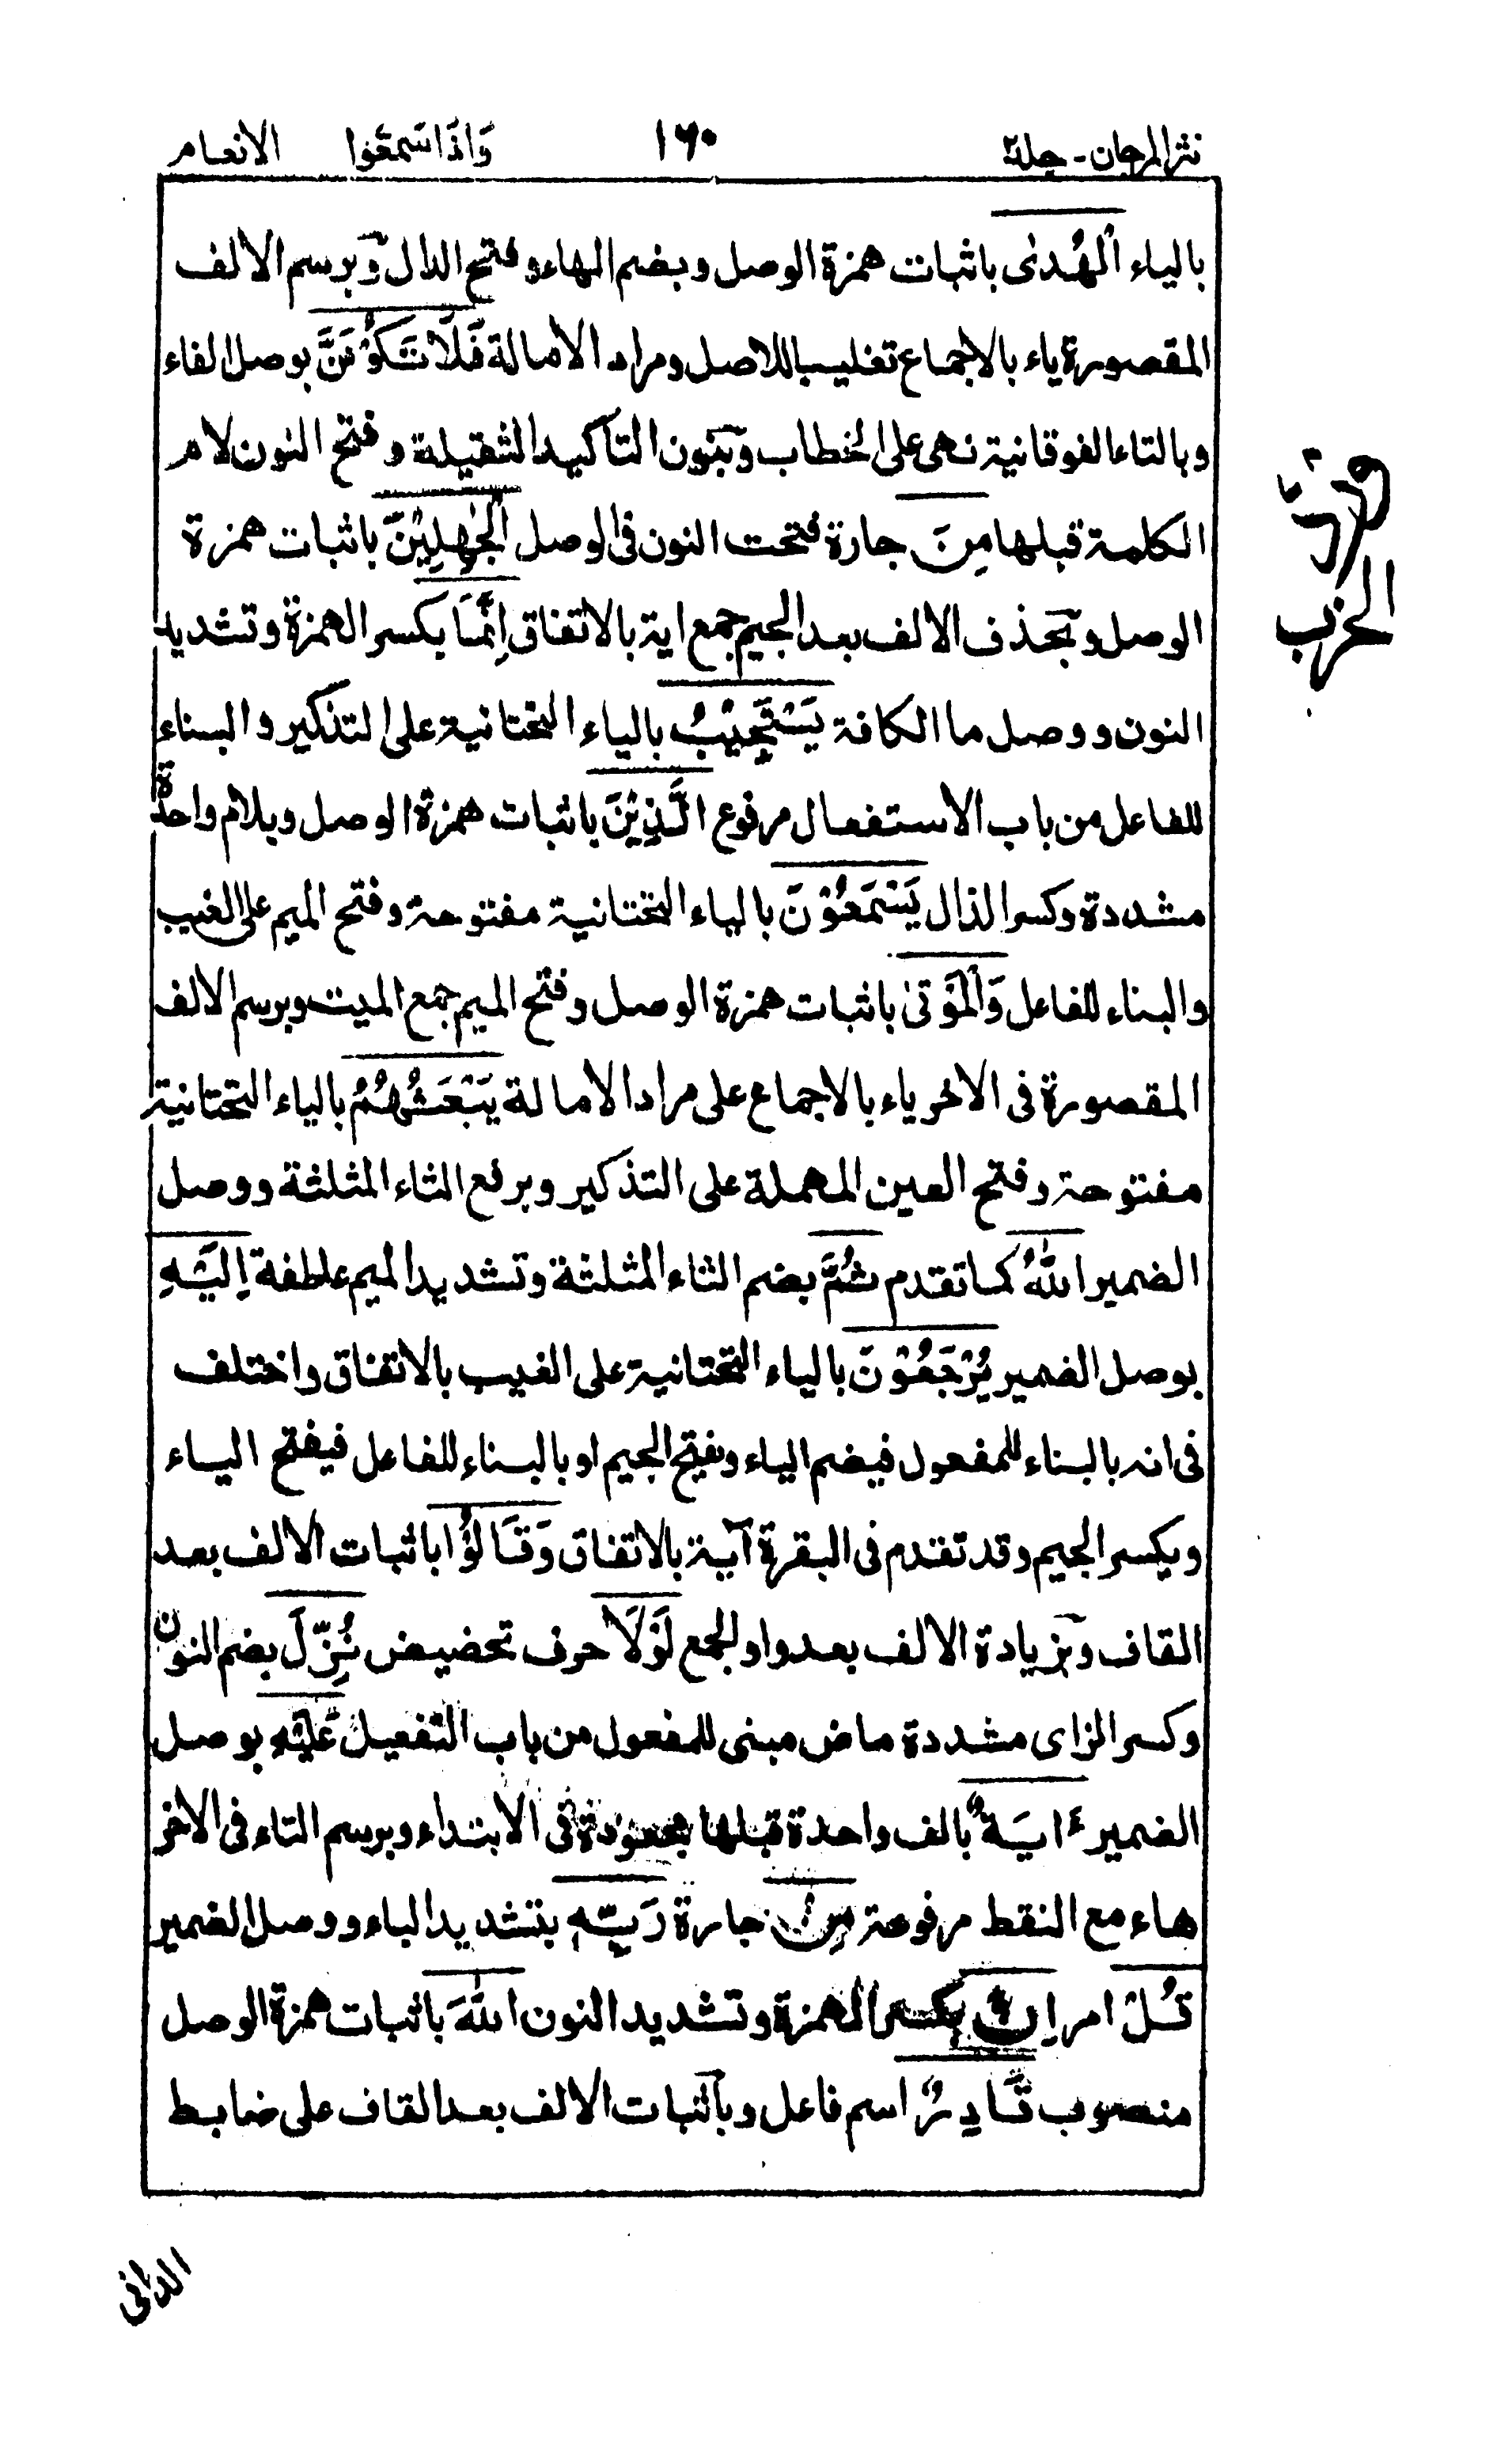 نثر المرجان - جلد ٢ ١٦٠ وَاِذَا سَمِعُوا الانعام
بالياء اَلْهُدٰى باثبات همزة الوصل وبضم الهاء وفتح الدال وَبرسم الالف
المقصورة ياء بالاجماع تغليبا للاصل ومراد الامالة فَلَا تَكُوْنَنَّ بوصل الفاء
وبالتاء الفوقانية نهى على الخطاب وَبنون التاكيد الثقيلة وفتح النون لام
الكلمة قبلها مِنَ جارة فتحت النون فى الوصل الْجٰهِلِيْنَ باثبات همزة
الوصل وبحذف الالف بعد الجيم جمع اية بالاتفاق اِنَّمَا بكسر الهمزة وتشديد
النون ووصل ما الكافة يَسْتَجِيْبُ بالياء التحتانية على التذكير والبناء
للفاعل من باب الاستفعال مرفوع الَّذِيْنَ باثبات همزة الوصل وبلام واحدة
مشددة وكسر الذال يَسْمَعُوْنَ بالياء التحتانية مفتوحة وفتح الميم على الغيب
والبناء للفاعل وَالْمَوْتٰى باثبات همزة الوصل وفتح الميم جمع الميت وبرسم الالف
المقصورة فى الاخر ياء بالاجماع على مراد الامالة يَبْعَثُهُمُ بالياء التحتانية
مفتوحة وفتح العين المهملة على التذكير وبرفع الثاء المثلثة ووصل
الضمير اللّٰهُ كما تقدم ثُمَّ بضم الثاء المثلثة وتشديد الميم عاطفة اِلَيْهِ
بوصل الضمير يُرْجَعُوْنَ بالياء التحتانية على الغيب بالاتفاق واختلف
فى انه بالبناء للمفعول فيضم الياء وبفتح الجيم او بالبناء للفاعل فيفتح الياء
ويكسر الجيم وقد تقدم فى البقرة آية بالاتفاق وَقَالُوْا باثبات الالف بعد
القاف وَبزيادة الالف بعد واو الجمع لَوْلَا حرف تحضيض نُزِّلَ بضم النون
وكسر الزاى مشددة ماض مبنى للمفعول من باب التفعيل عَلَيْهِ بوصل
الضمير ءايَةٌ بالف واحدة قبلها مجعودة فى الابتداء وبرسم التاء فى الاخر
هاء مع النقط مرفوعة مِنْ جارة رَبِّهٖ بتشديد الباء ووصل الضمير
قُلْ امر اِنَّ بكسر الهمزة وتشديد النون اللّٰهَ باثبات همزة الوصل
منصوب قَادِرٌ اسم فاعل وباثبات الالف بعد القاف على ضابط
الحزب
الدانى